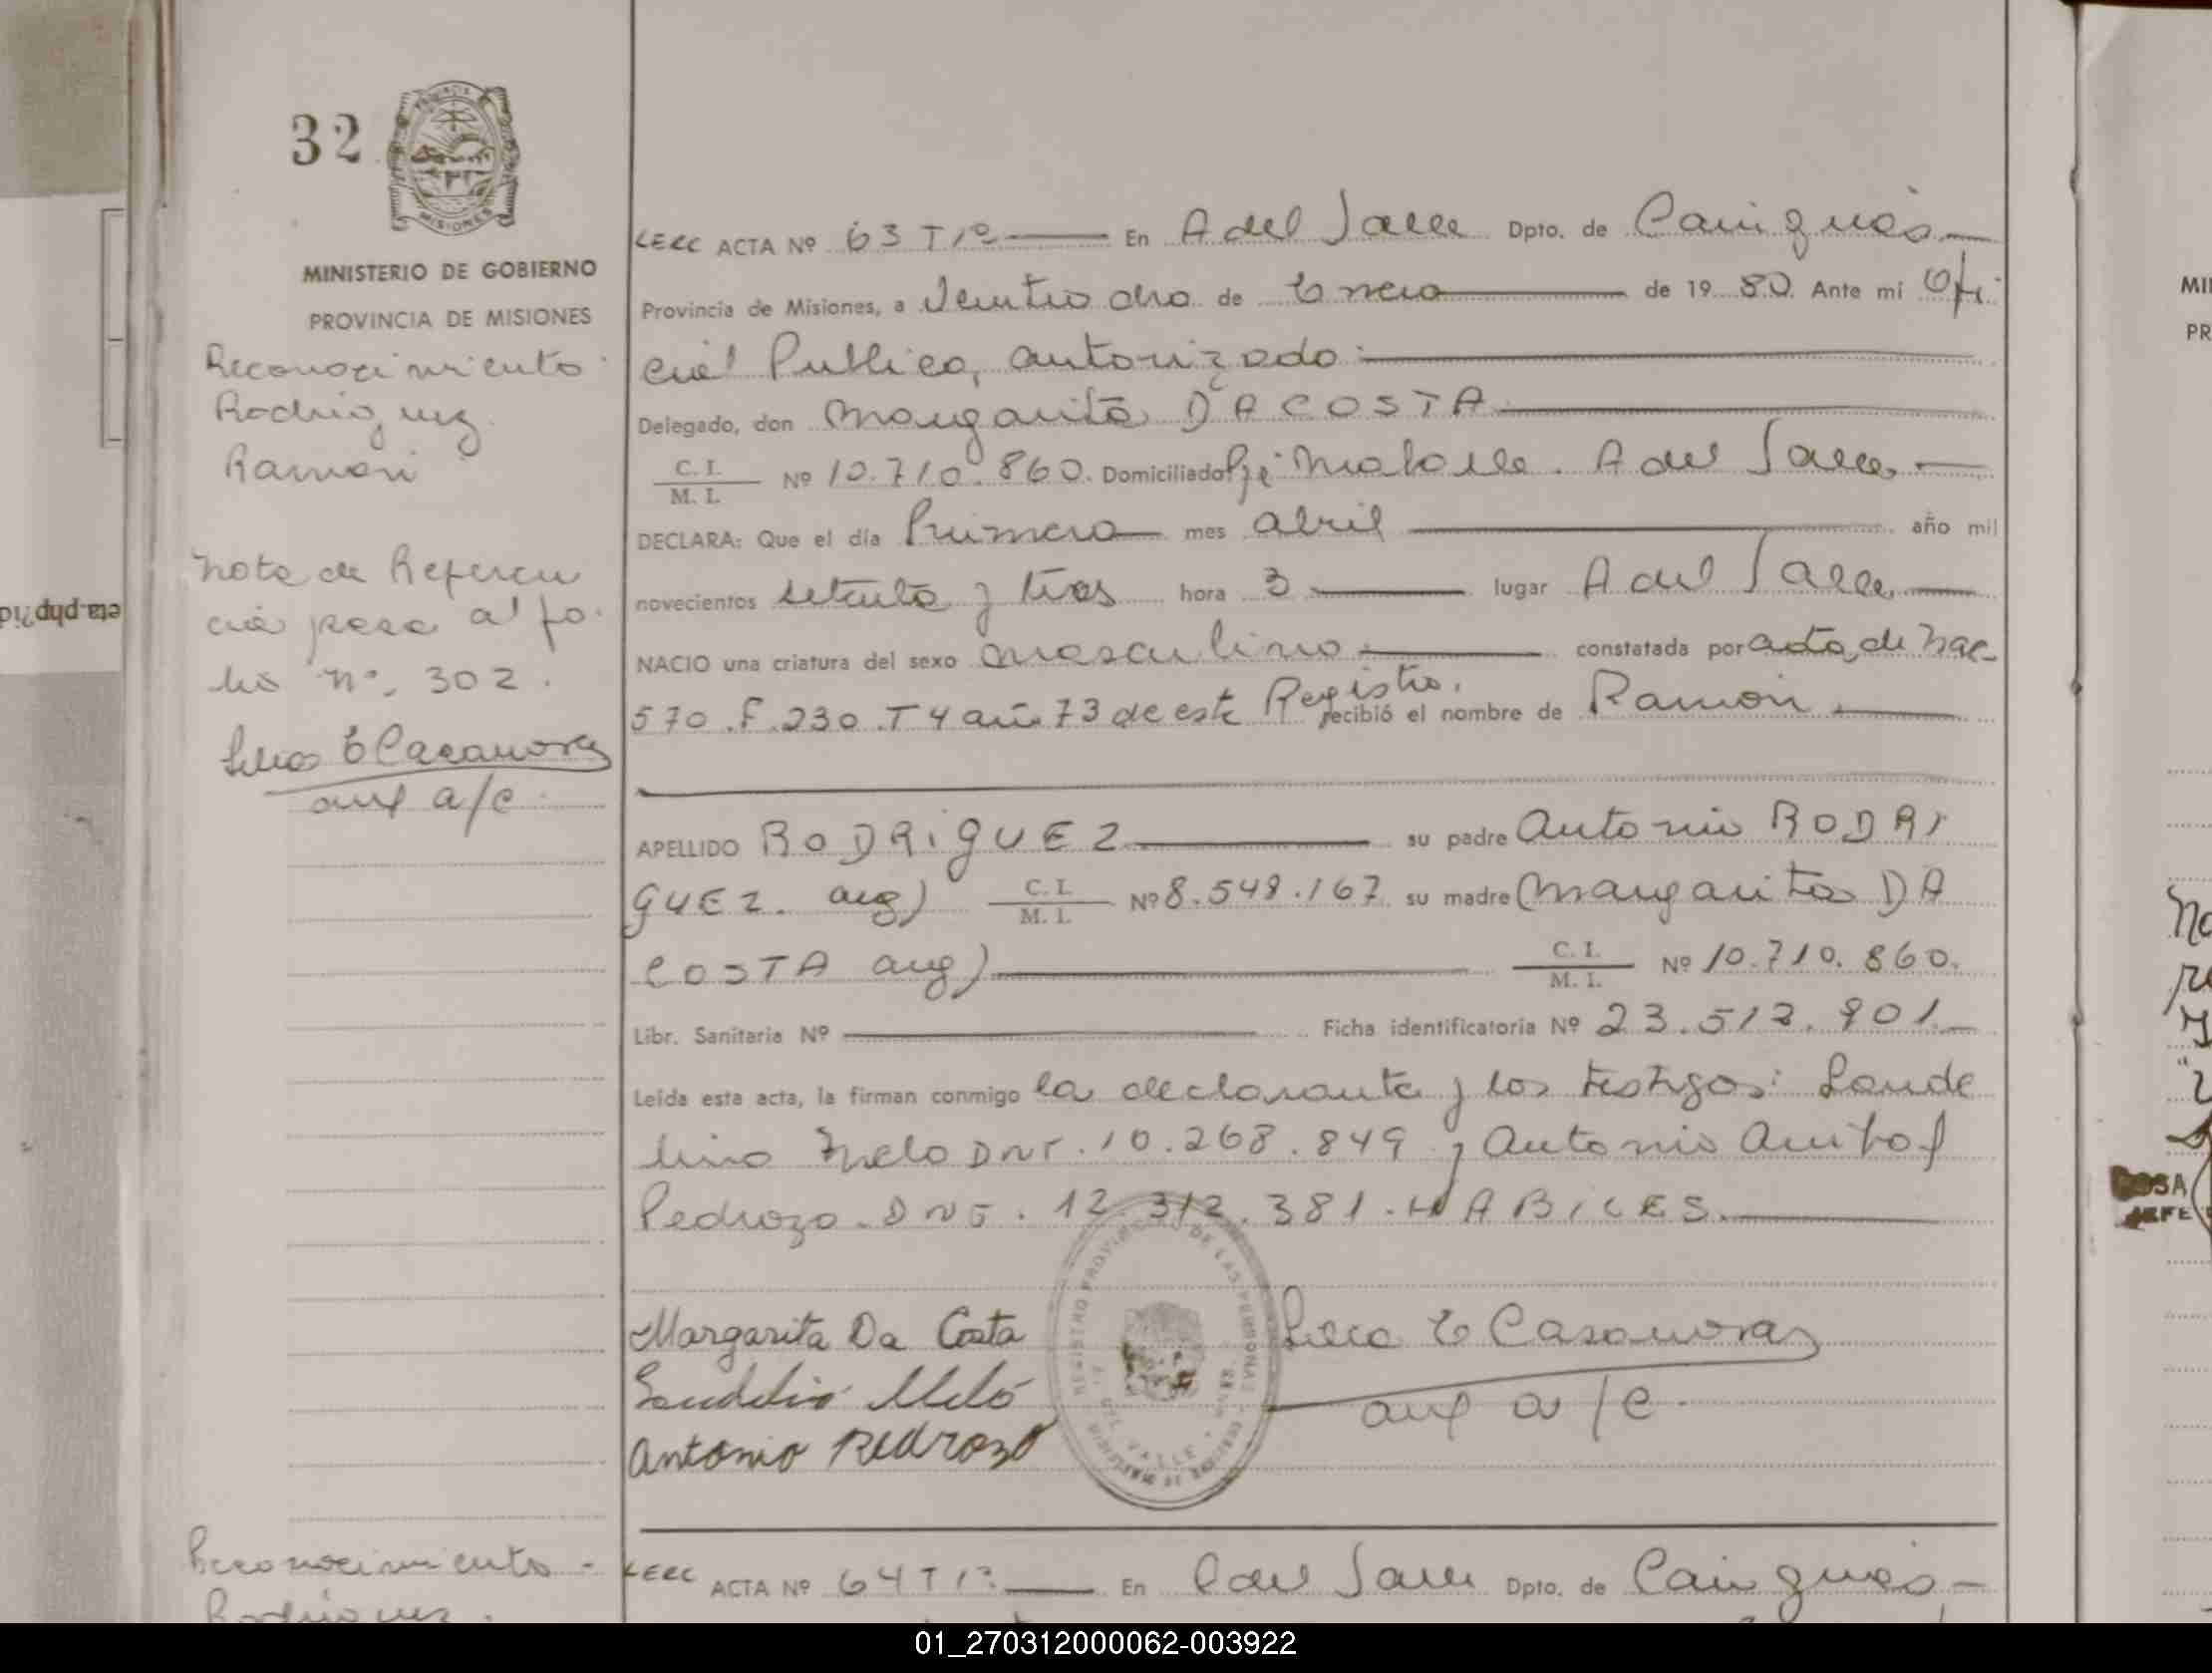 32
MINISTERIO DE GOBIERNO
PROVINCIA DE MISIONES
Reconocimiento
Rodriguez
Ramon
Nota de Referen
cia pasa al fo
lio nº. 302.
E Casanova
aux a/c
LEEC ACTA Nº 63 T1º En A del Valle Dpto. de Cainguás
Provincia de Misiones, a Veintiocho de Enero de 1980. Ante mi Ofi
cial Publico, autorizado
Delegado, don Margarita DA COSTA
C. I.
M. I. Nº 10.710.860. Domiciliado A del Valle
DECLARA: Que el día Primero mes abril año mil
novecientos setenta y tres hora 3 lugar A del Valle
NACIO una criatura del sexo masculino constatada por acta de Nac
570.F.230.T4 año 73 de este Registro. recibió el nombre de Ramon
APELLIDO RODRIGUEZ su padre Antonio RODRI
GUEZ. arg) C. I.
M. I. Nº 8.549.167 su madre Margarita DA
COSTA arg) C. I.
M. I. Nº 10.710.860.
Libr. Sanitaria Nº Ficha identificatoria Nº 23.512.901
Leída esta acta, la firman conmigo la declarante y los testigos: Laude
lino Melo DNI. 10.268.849 y Antonio
Pedrozo. DNI. 12.312.381. HABILES.
Margarita Da Costa
Laudelino Melo
Antonio Pedrozo
E Casanova
aux a/c
REGISTRO PROVINCIAL DE LAS PERSONAS
DEL VALLE
Reconocimiento
Rodriguez
LEEC ACTA Nº 64 T1º En A del Valle Dpto. de Cainguás
eta.php?id
MI
PR
JEFE
01_270312000062-003922